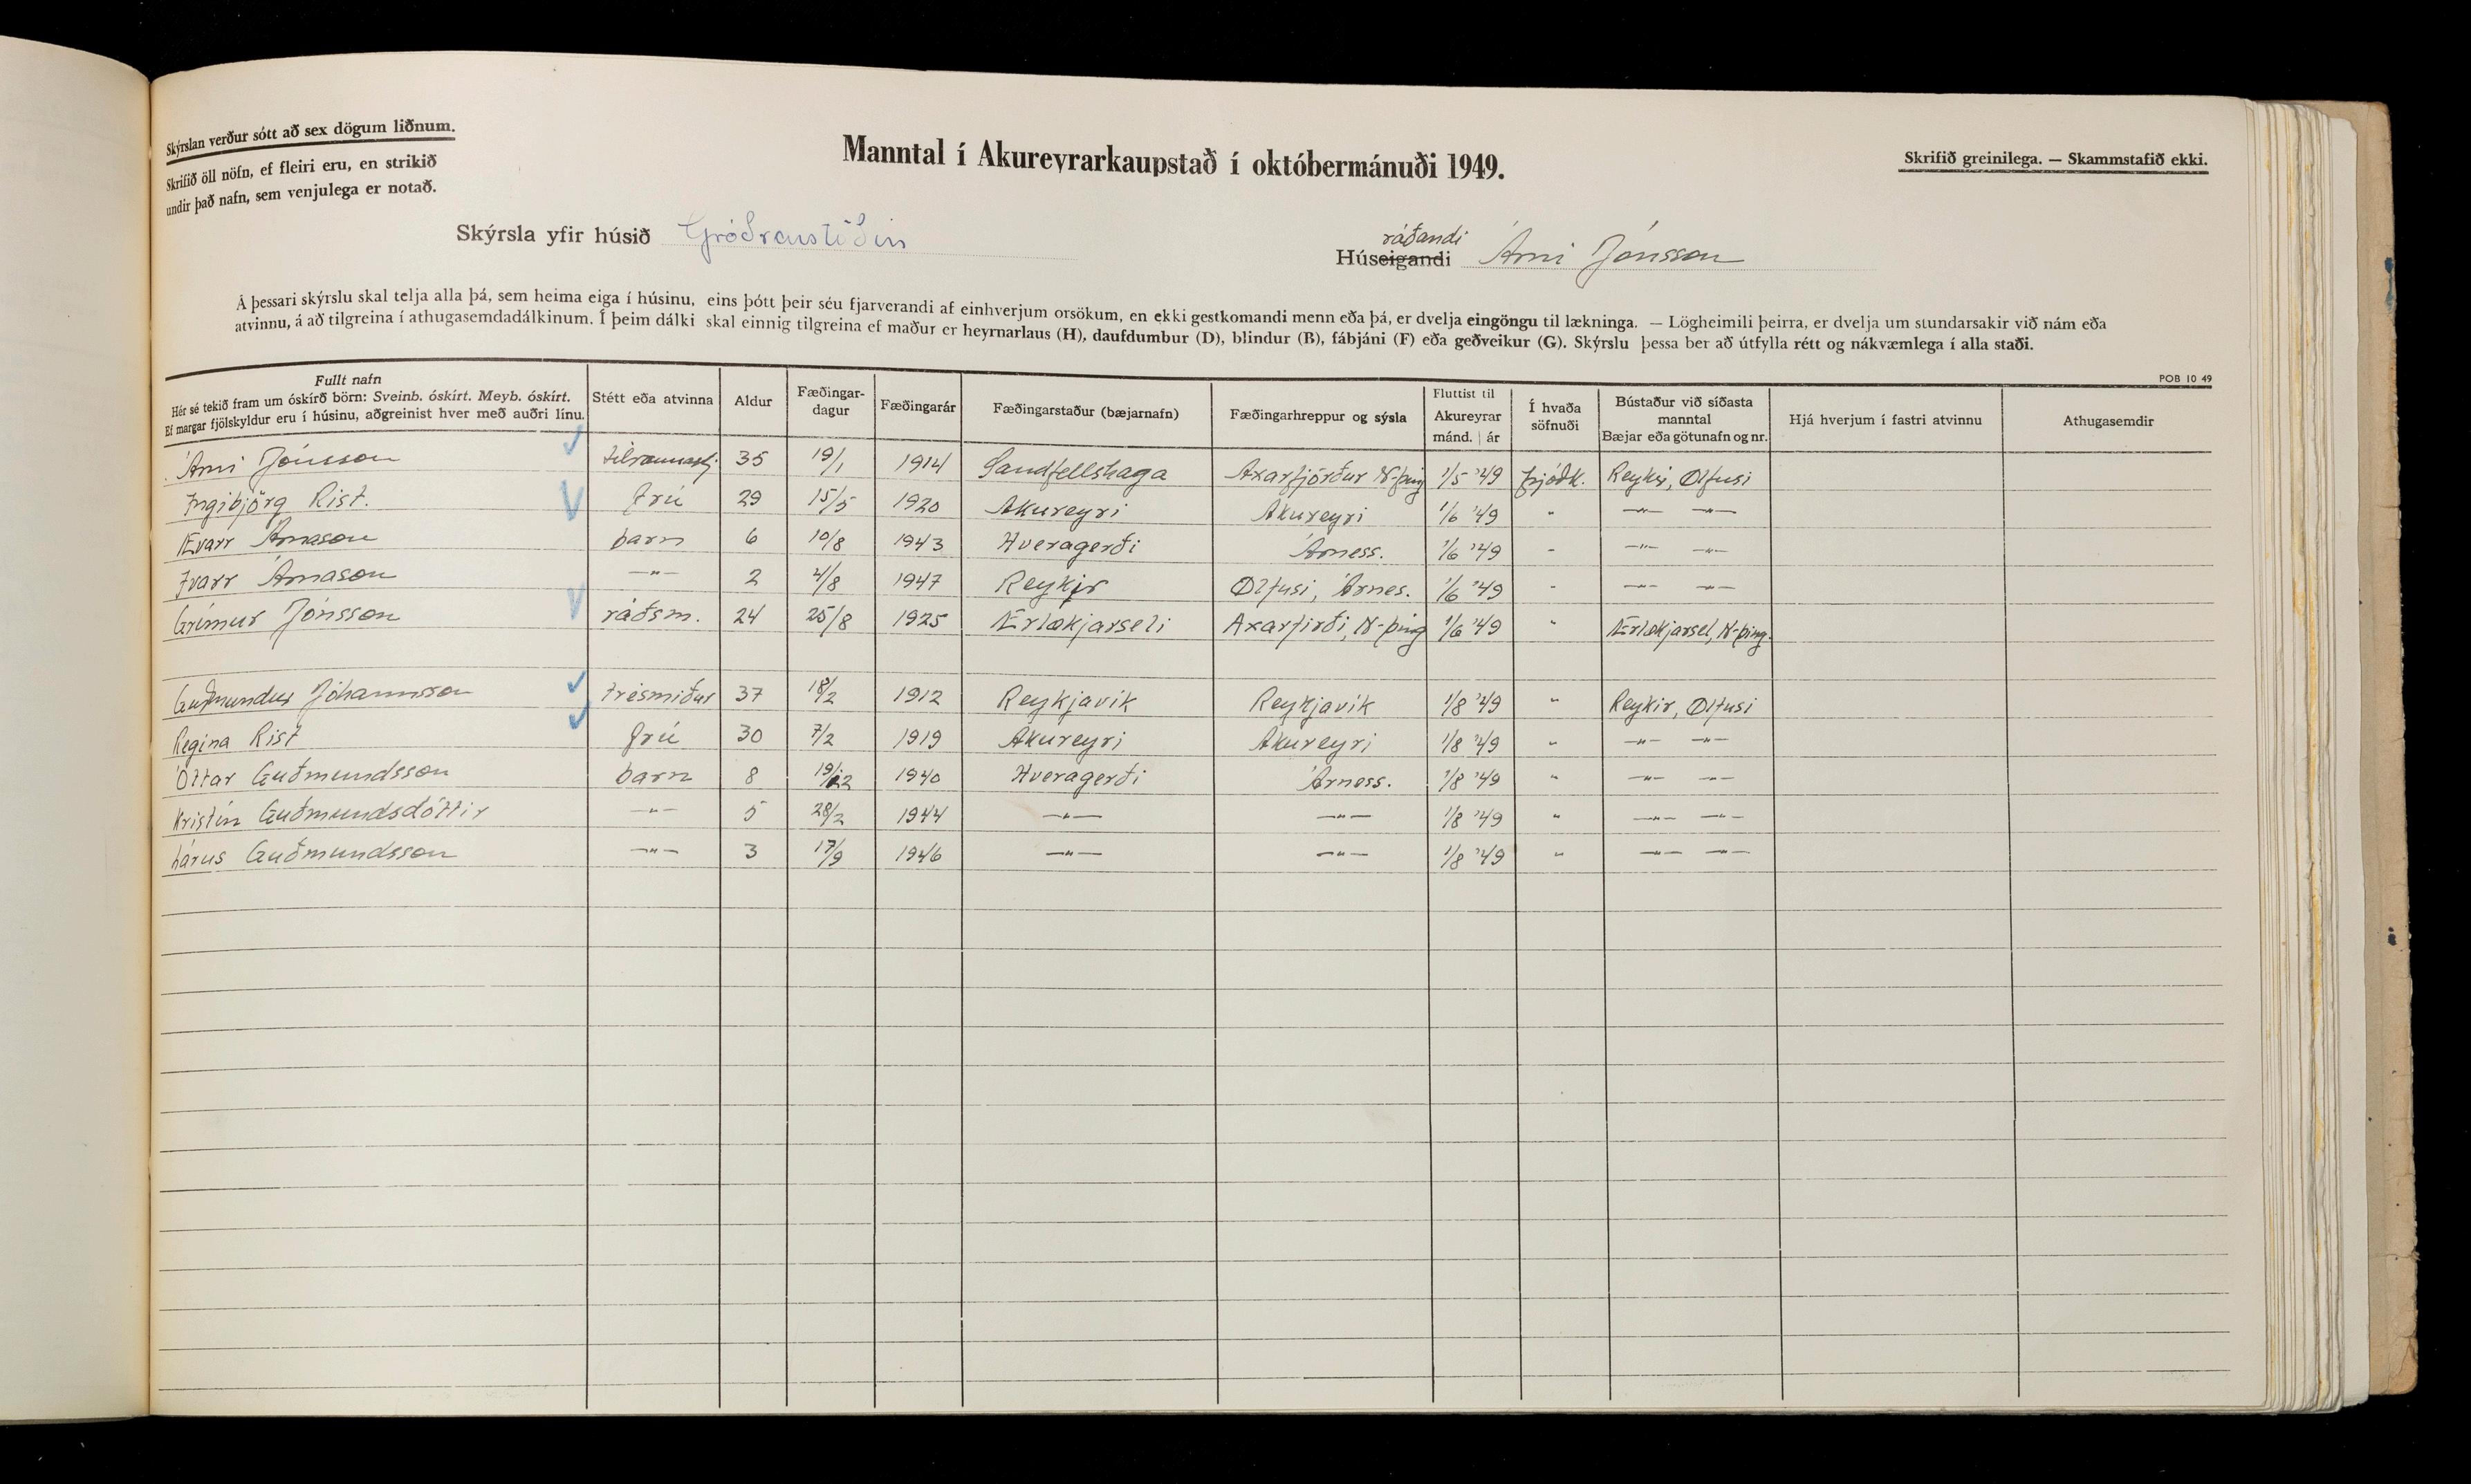 Skýrslan verður sótt að sex dögum liðnum.
Skrifið öll nöfn, ef fleiri eru, en strikið
undir það nafn, sem venjulega er notað.
Manntal í Akureyrarkaupstað í októbermánuði 1949.
Skrifið greinilega. — Skammstafið ekki.
Skýrsla yfir húsið Gróðrarstöðin
ráðandi
Húseigandi Árni Jónsson
Á þessari skýrslu skal telja alla þá, sem heima eiga í húsinu, eins þótt þeir séu fjarverandi af einhverjum orsökum, en ekki gestkomandi menn eða þá, er dvelja eingöngu til lækninga. — Lögheimili þeirra, er dvelja um stundarsakir við nám eða
atvinnu, á að tilgreina í athugasemdadálkinum. Í þeim dálki skal einnig tilgreina ef maður er heyrnarlaus (H), daufdumbur (D), blindur (B), fábjáni (F) eða geðveikur (G). Skýrslu þessa ber að útfylla rétt og nákvæmlega í alla staði.
POB 10 49
Fullt nafn
Hér sé tekið fram um óskírð börn: Sveinb. óskírt. Meyb. óskírt.
Ef margar fjölskyldur eru í húsinu, aðgreinist hver með auðri línu.
Stétt eða atvinna
Aldur
Fæðingar-
dagur
Fæðingarár
Fæðingarstaður (bæjarnafn)
Fæðingarhreppur og sýsla
Fluttist til
Akureyrar
mánd. | ár
Í hvaða
söfnuði
Bústaður við síðasta
manntal
Bæjar eða götunafn og nr.
Hjá hverjum í fastri atvinnu
Athugasemdir
Árni Jónsson tilraunastj 35 19/1 1914 Sandfellshaga Axarfjörður N-þing 1/5 '49 þjóðk. Reykir, Ölfusi
Ingibjörg Rist. frú 29 15/5 1920 Akureyri Akureyri 1/6 '49 " —"— —"—
Ævarr Árnason barn 6 10/8 1943 Hveragerði Árness. 1/6 '49 " —"— —"—
Ívarr Árnason —"— 2 4/8 1947 Reykir Ölfusi, Árnes. 1/6 '49 " —"— —"—
Grímur Jónsson ráðsm. 24 25/8 1925 Ærlækjarseli Axarfirði, N-þing 1/6 '49 " Ærlækjarsel, N-þing.
Guðmundur Jóhannsson trésmiður 37 18/2 1912 Reykjavík Reykjavík 1/8 '49 " Reykir, Ölfusi
Regina Rist frú 30 7/2 1919 Akureyri Akureyri 1/8 '49 " —"— —"—
Óttar Guðmundsson barn 8 19/12 1940 Hveragerði Árness. 1/8 '49 " —"— —"—
Kristín Guðmundsdóttir —"— 5 28/2 1944 —"— —"— 1/8 '49 " —"— —"—
Lárus Guðmundsson —"— 3 17/9 1946 —"— —"— 1/8 '49 " —"— —"—